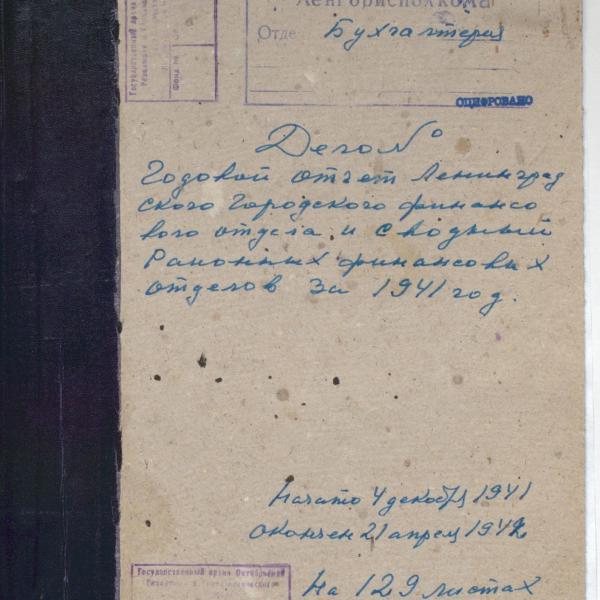 Ленгорисполкома
Отде Бухгалтерия
Государственный архив
Фонд №
ОЦИФРОВАНО
Дело №
Годовой отчет Ленинград
ского Городского финансо
вого отдела и сводный
Районных финансовых
отделов за 1941 год.
Начато 4 декабря 1941
Окончен 21 апреля 1942
Государственный архив Октябрьской
На 129 листах